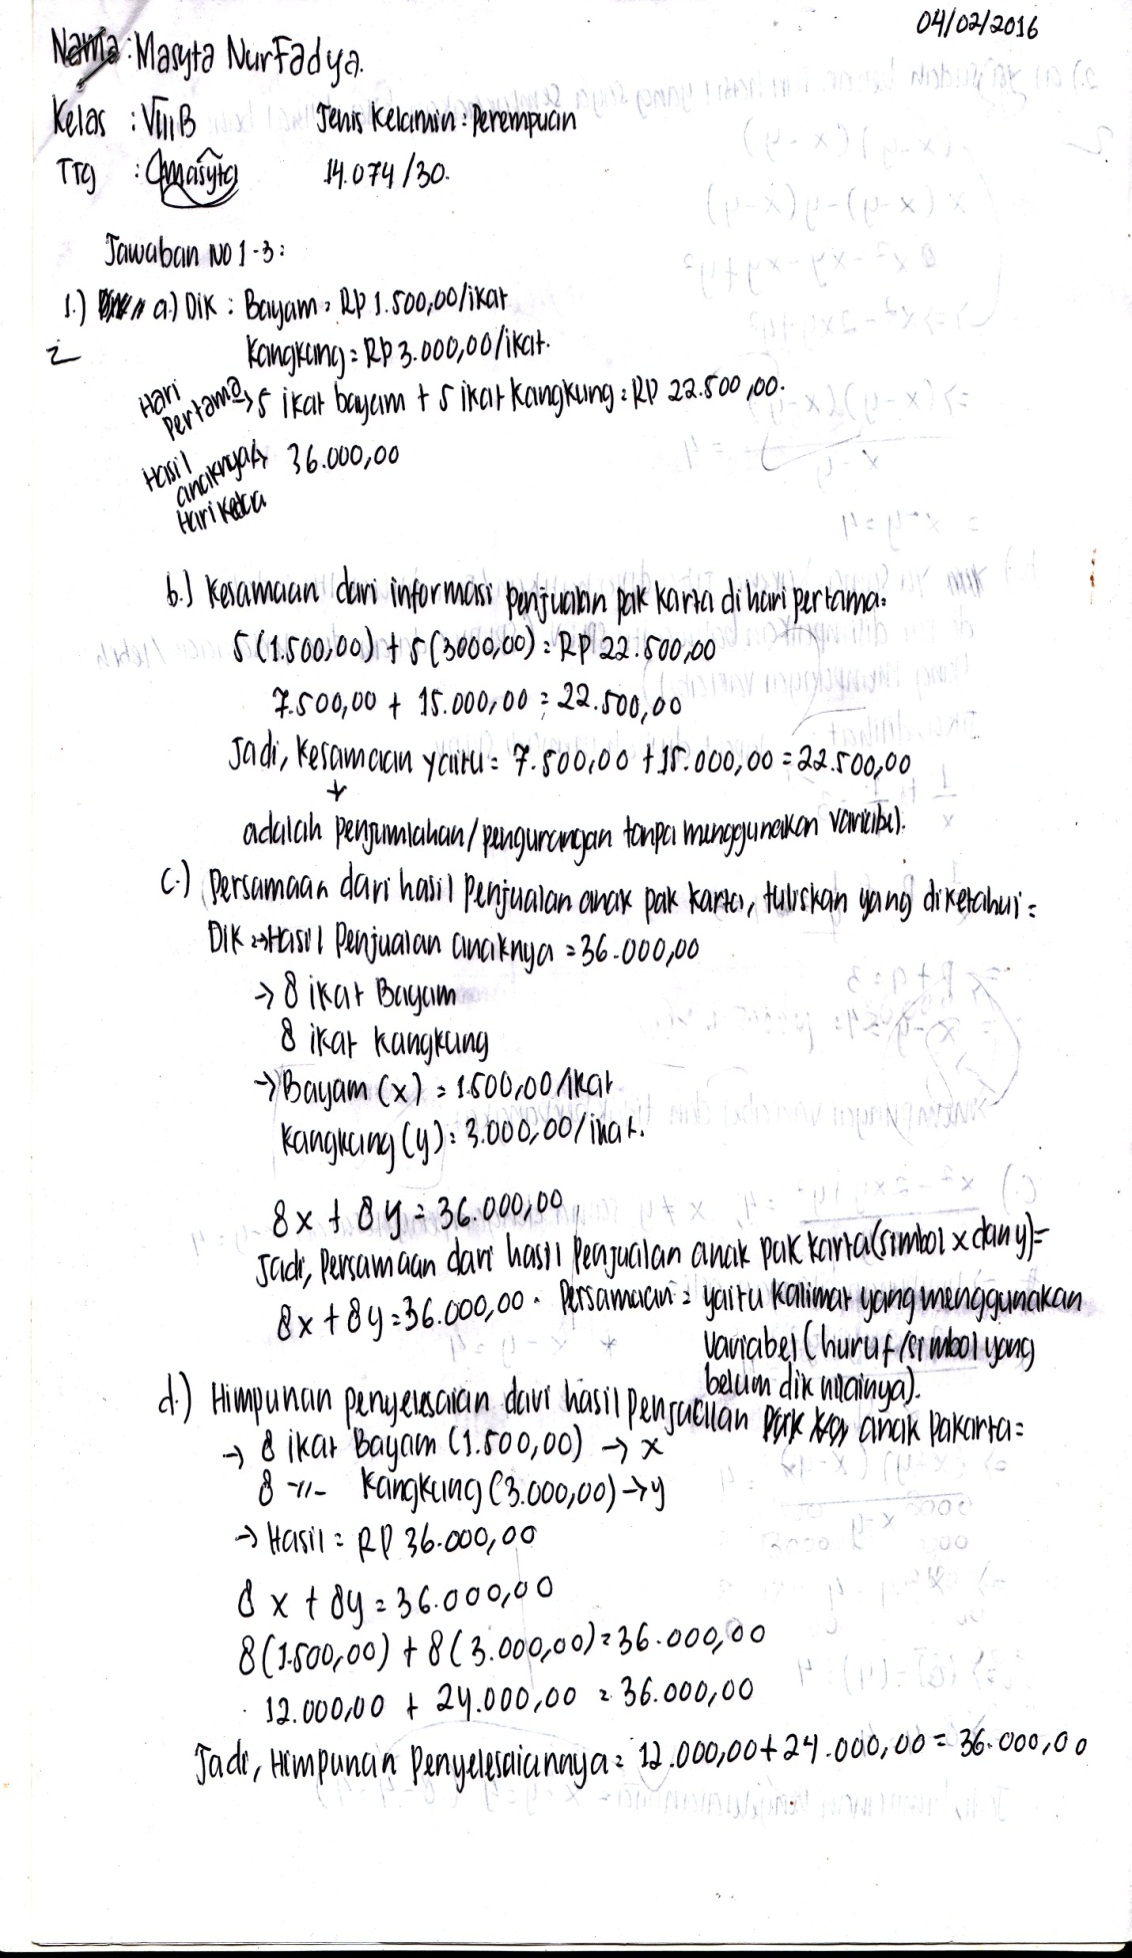 04/02/2016
Nama : Masyta NurFadya.
Kelas : VIII B Jenis Kelamin : Perempuan
TTg : Masyta 14.074/30.
Jawaban No 1-3 :
1.) a.) Dik : Bayam = Rp 1.500,00/ikat
2
Kangkung = Rp 3.000,00/ikat.
Hari Pertama → 5 ikat bayam + 5 ikat Kangkung = Rp 22.500,00.
Hasil anaknya → 36.000,00
Hari Kedua
b.) Kesamaan dari informasi penjualan pak karta di hari pertama =
5 (1.500,00) + 5 (3000,00) = Rp 22.500,00
7.500,00 + 15.000,00 = 22.500,00
Jadi, Kesamaan yaitu = 7.500,00 + 15.000,00 = 22.500,00
adalah penjumlahan/pengurangan tanpa menggunakan variabel.
c.) Persamaan dari hasil Penjualan anak pak karta, tuliskan yang diketahui =
Dik → Hasil Penjualan anaknya = 36.000,00
→ 8 ikat Bayam
8 ikat kangkung
→ Bayam (x) = 1.500,00/ikat
Kangkung (y) = 3.000,00/ikat.
8x + 8y = 36.000,00
Jadi, Persamaan dari hasil Penjualan anak pak karta (simbol x dan y) =
8x + 8y = 36.000,00. Persamaan = yaitu kalimat yang menggunakan
variabel (huruf/simbol yang
belum dik nilainya).
d.) Himpunan penyelesaian dari hasil Penjualan anak Pakarta =
→ 8 ikat Bayam (1.500,00) → x
8 -"- Kangkung (3.000,00) → y
→ Hasil = Rp 36.000,00
8x + 8y = 36.000,00
8 (1.500,00) + 8 (3.000,00) = 36.000,00
12.000,00 + 24.000,00 = 36.000,00
Jadi, Himpunan Penyelesaiannya = 12.000,00 + 24.000,00 = 36.000,00